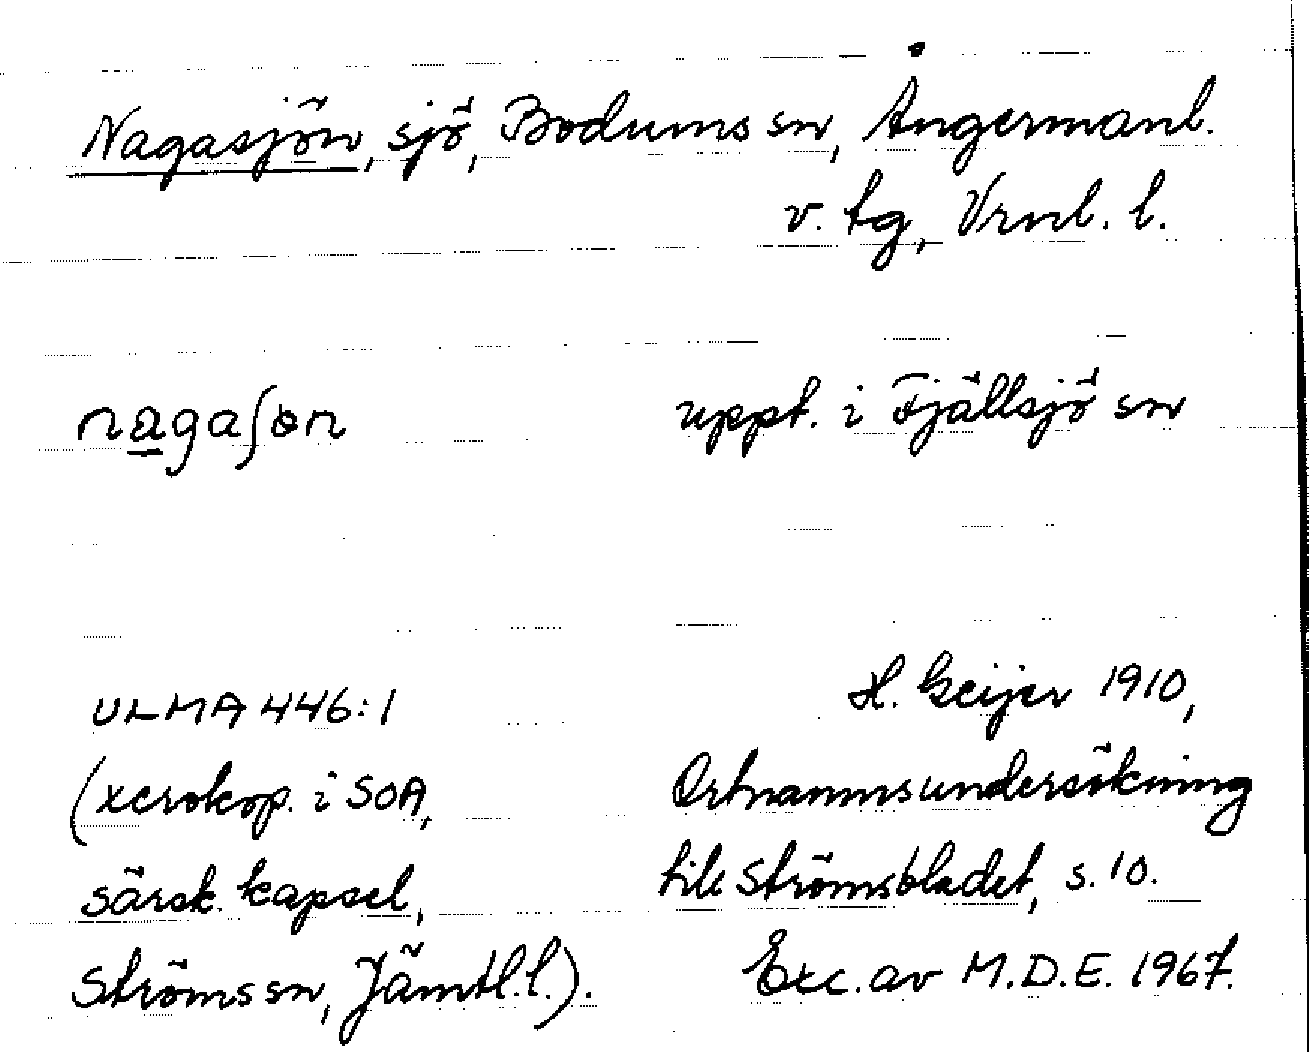 Nagasjön, sjö, Bodums sn, Ångermanl.
v. tg, Vrnl. l.
nagaʃɵn uppt. i Fjällsjö sn
ULMA 446:1 H. Geijer 1910,
(xerokop. i SOA, Ortnamnsundersökning
särsk. kapsel, till Strömsbladet, s. 10.
Ströms sn, Jämtl. l.). Exc. av M.D.E. 1967.